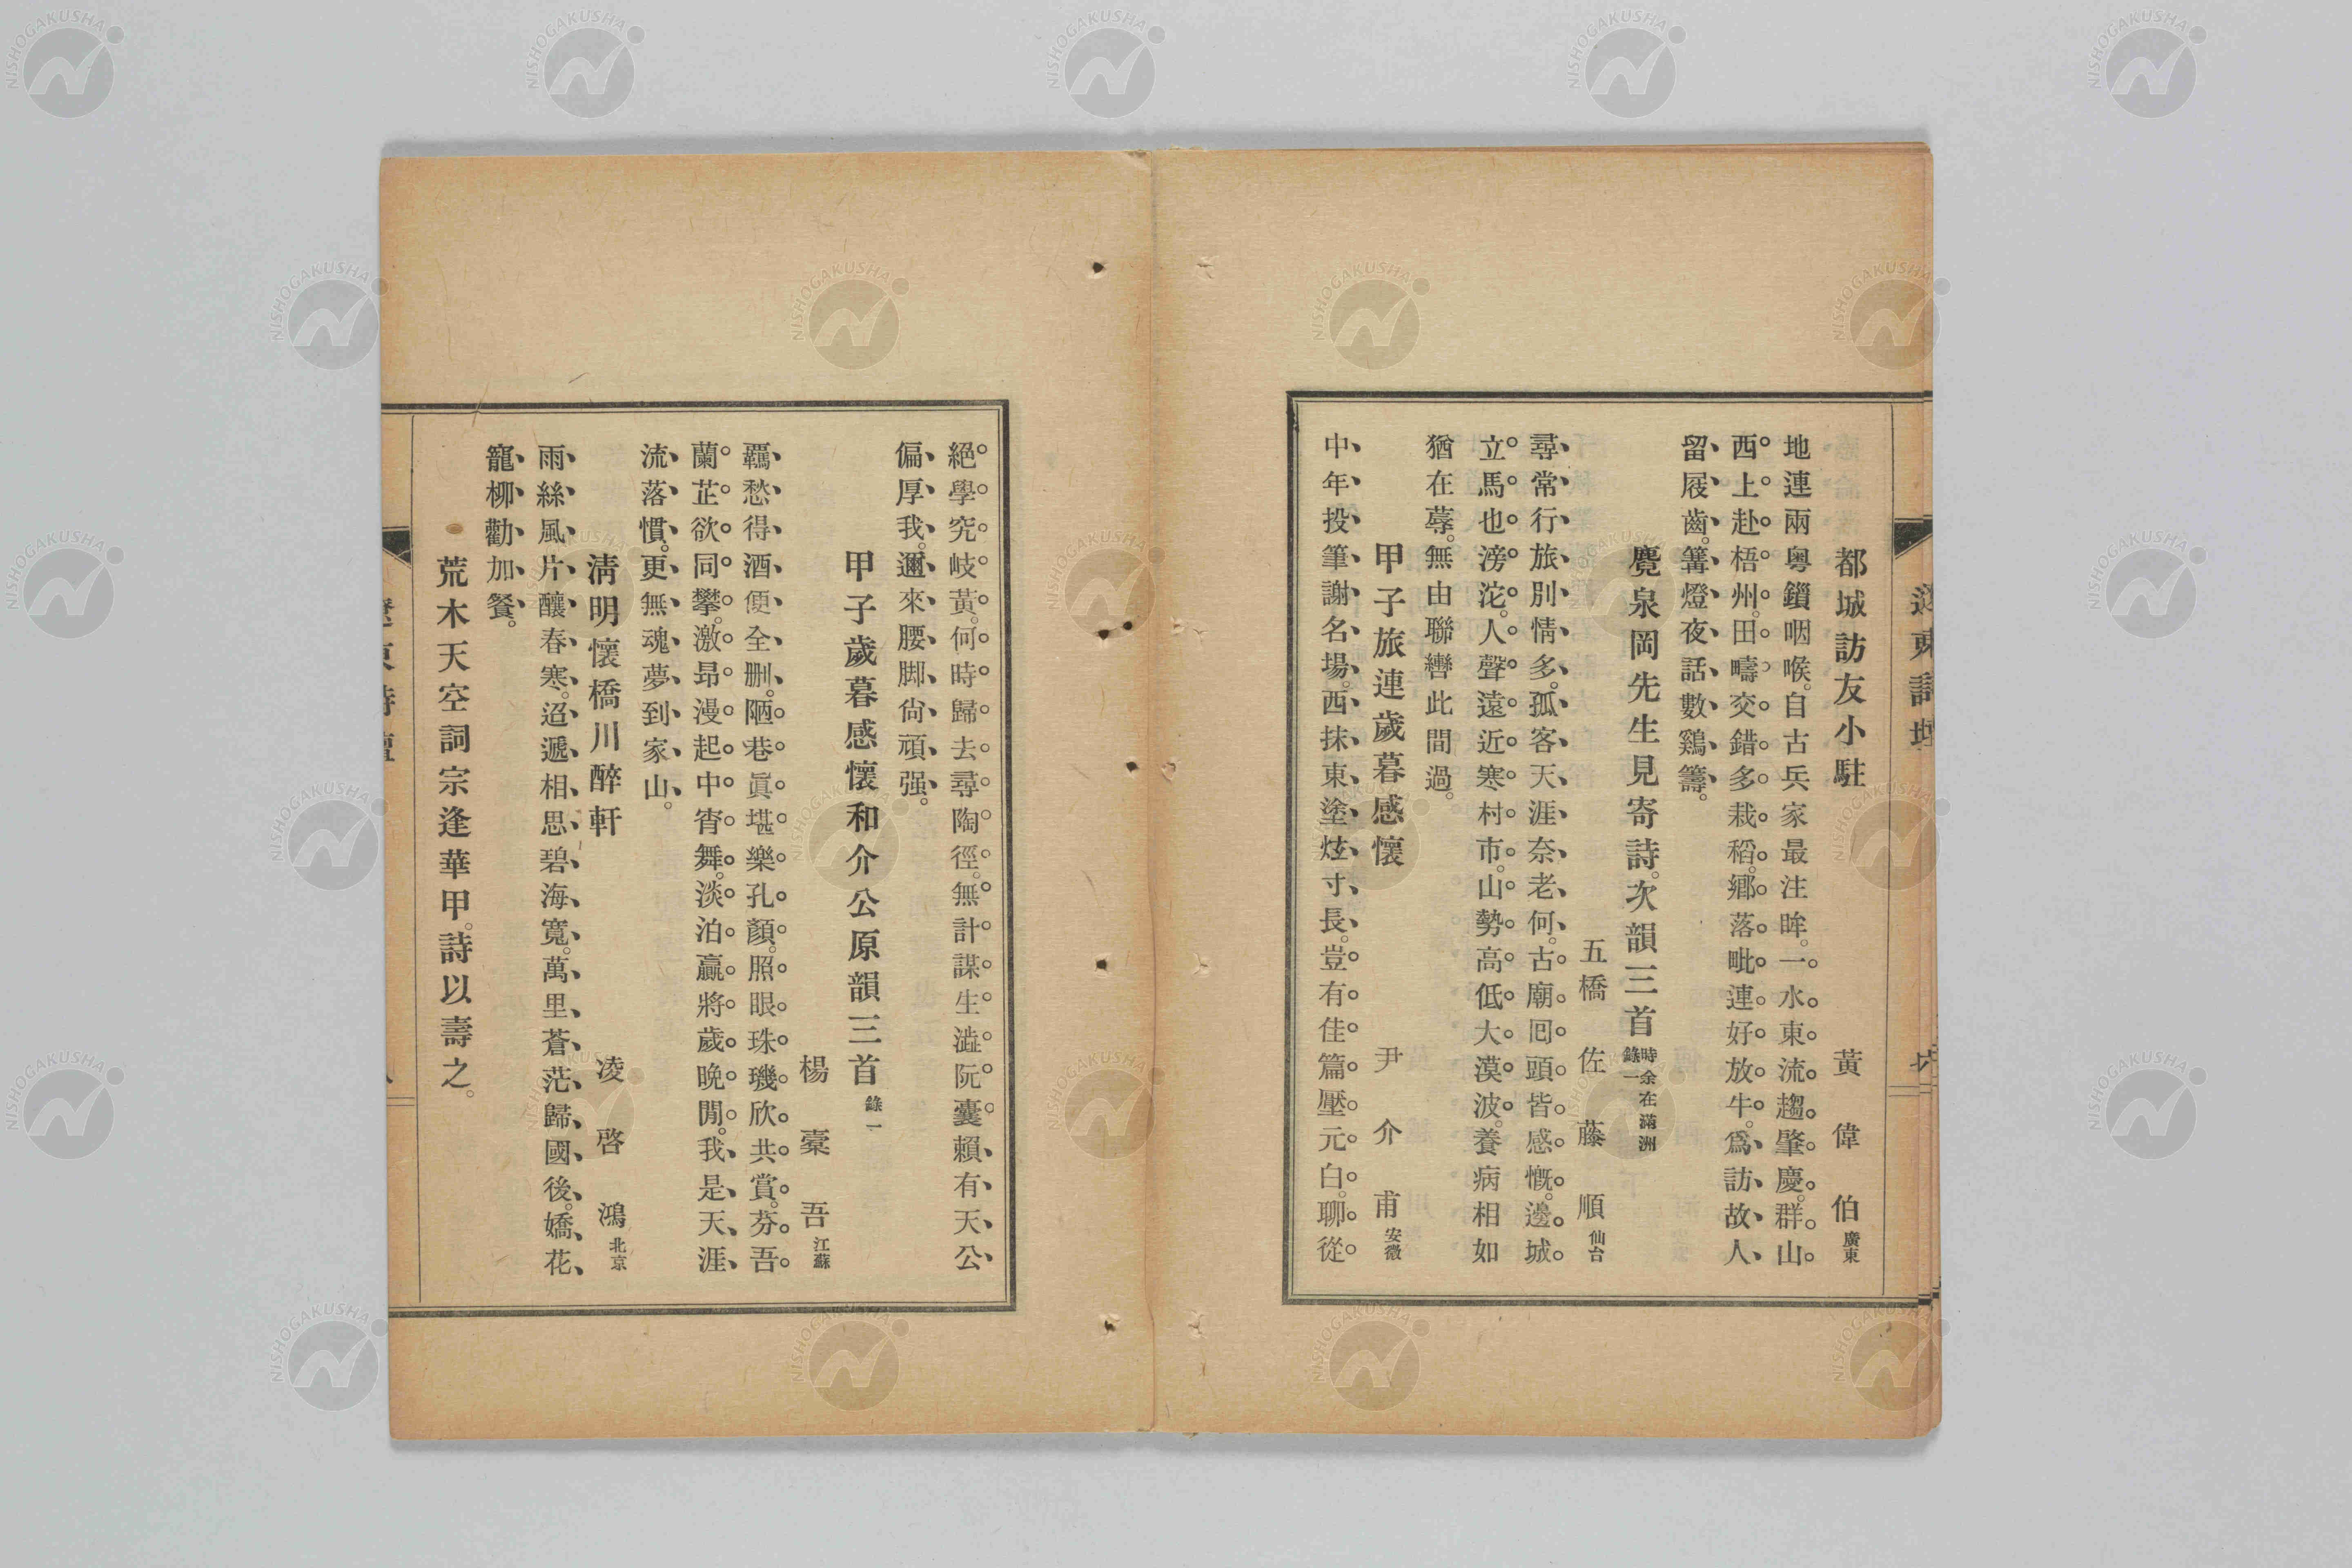 遼東詩壇
都城訪友小駐
黃偉伯 廣東
地連兩粤鎖咽喉。自古兵家最注眸。一水東流趨肇慶。群山
西上赴梧州。田疇交錯多栽稻。鄉落毗連好放牛。爲訪故人
留屐齒。篝燈夜話數鷄籌。
麑泉岡先生見寄詩。次韻三首 時余在滿洲錄一
五橋 佐藤順 仙台
尋常行旅別情多。孤客天涯奈老何。古廟囘頭皆感慨。邊城
立馬也滂沱。人聲遠近寒村市。山勢高低大漠波。養病相如
猶在蓐。無由聯轡此間過。
甲子旅連歲暮感懷
尹介甫 安徽
中年投筆謝名場。西抹東塗炫寸長。豈有佳篇壓元白。聊從
絕學究岐黃。何時歸去尋陶徑。無計謀生澁阮囊。賴有天公
偏厚我。邇來腰脚尙頑强。
甲子歲暮感懷和介公原韻三首 錄一
楊槖吾 江蘇
羈愁得酒便全删。陋巷眞堪樂孔顏。照眼珠璣欣共賞。芬吾
蘭芷欲同攀。激昻漫起中宵舞。淡泊贏將歲晚閒。我是天涯
流落慣。更無魂夢到家山。
淸明懷橋川醉軒
凌啓鴻 北京
雨絲風片釀春寒。迢遞相思碧海寬。萬里蒼茫歸國後。嬌花
寵柳勸加餐。
荒木天空詞宗逢華甲。詩以壽之。